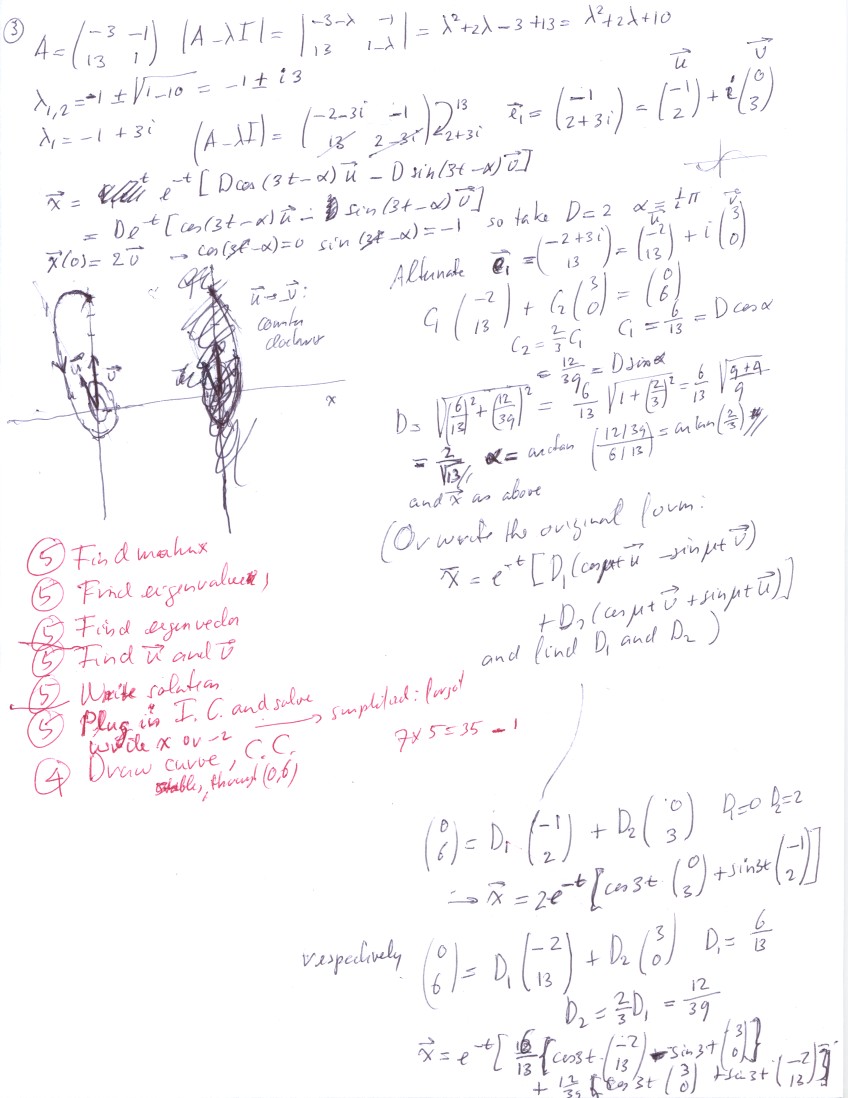 ③ A = (-3 -1; 13 1) |A - λI| = |-3-λ -1; 13 1-λ| = λ²+2λ-3+13 = λ²+2λ+10
λ₁,₂ = -1 ± √(1-10) = -1 ± i3
λ₁ = -1 + 3i (A - λI) = (-2-3i -1; 13 2-3i) 13 2+3i e⃗₁ = (-1; 2+3i) = (-1; 2) + i(0; 3)
u⃗ v⃗
x⃗ = e^-t [D cos(3t-α) u⃗ - D sin(3t-α) v⃗]
= De^-t [cos(3t-α) u⃗ - sin(3t-α) v⃗]
x⃗(0) = 2v⃗ → cos(3t-α) = 0 sin(3t-α) = -1 so take D = 2 α = ½π
Alternate e⃗₁ = (-2+3i; 13) = (-2; 13) + i(3; 0)
u⃗ v⃗
C₁(-2; 13) + C₂(3; 0) = (0; 6)
C₂ = 2/3 C₁ C₁ = 6/13 = D cos α
= 12/39 = D sin α
D = √((6/13)² + (12/39)²) = 6/13 √(1 + (2/3)²) = 6/13 √((9+4)/9)
= 2/√13, α = arctan((12/39)/(6/13)) = arctan(2/3)
and x⃗ as above
u⃗ → v⃗:
counter
clockwise
u⃗ v⃗
x
(Or write the original form:
x⃗ = e^-t [D₁(cos μt u⃗ - sin μt v⃗)
+ D₂(cos μt v⃗ + sin μt u⃗)]
and find D₁ and D₂)
⑤ Find matrix
⑤ Find eigenvalues
⑤ Find eigenvector
⑤ Find u⃗ and v⃗
⑤ Write solution
⑤ Plug in I.C. and solve → simplified: forget
write x or -2
④ Draw curve, C.C.
stable, through (0,6)
7 x 5 = 35 - 1
(0; 6) = D₁(-1; 2) + D₂(0; 3) D₁=0 D₂=2
→ x⃗ = 2e^-t [cos 3t (0; 3) + sin 3t (-1; 2)]
respectively (0; 6) = D₁(-2; 13) + D₂(3; 0) D₁ = 6/13
D₂ = 2/3 D₁ = 12/39
x⃗ = e^-t [6/13 {cos 3t · (-2; 13) - sin 3t (3; 0)}
+ 12/39 {cos 3t (3; 0) + sin 3t · (-2; 13)}]